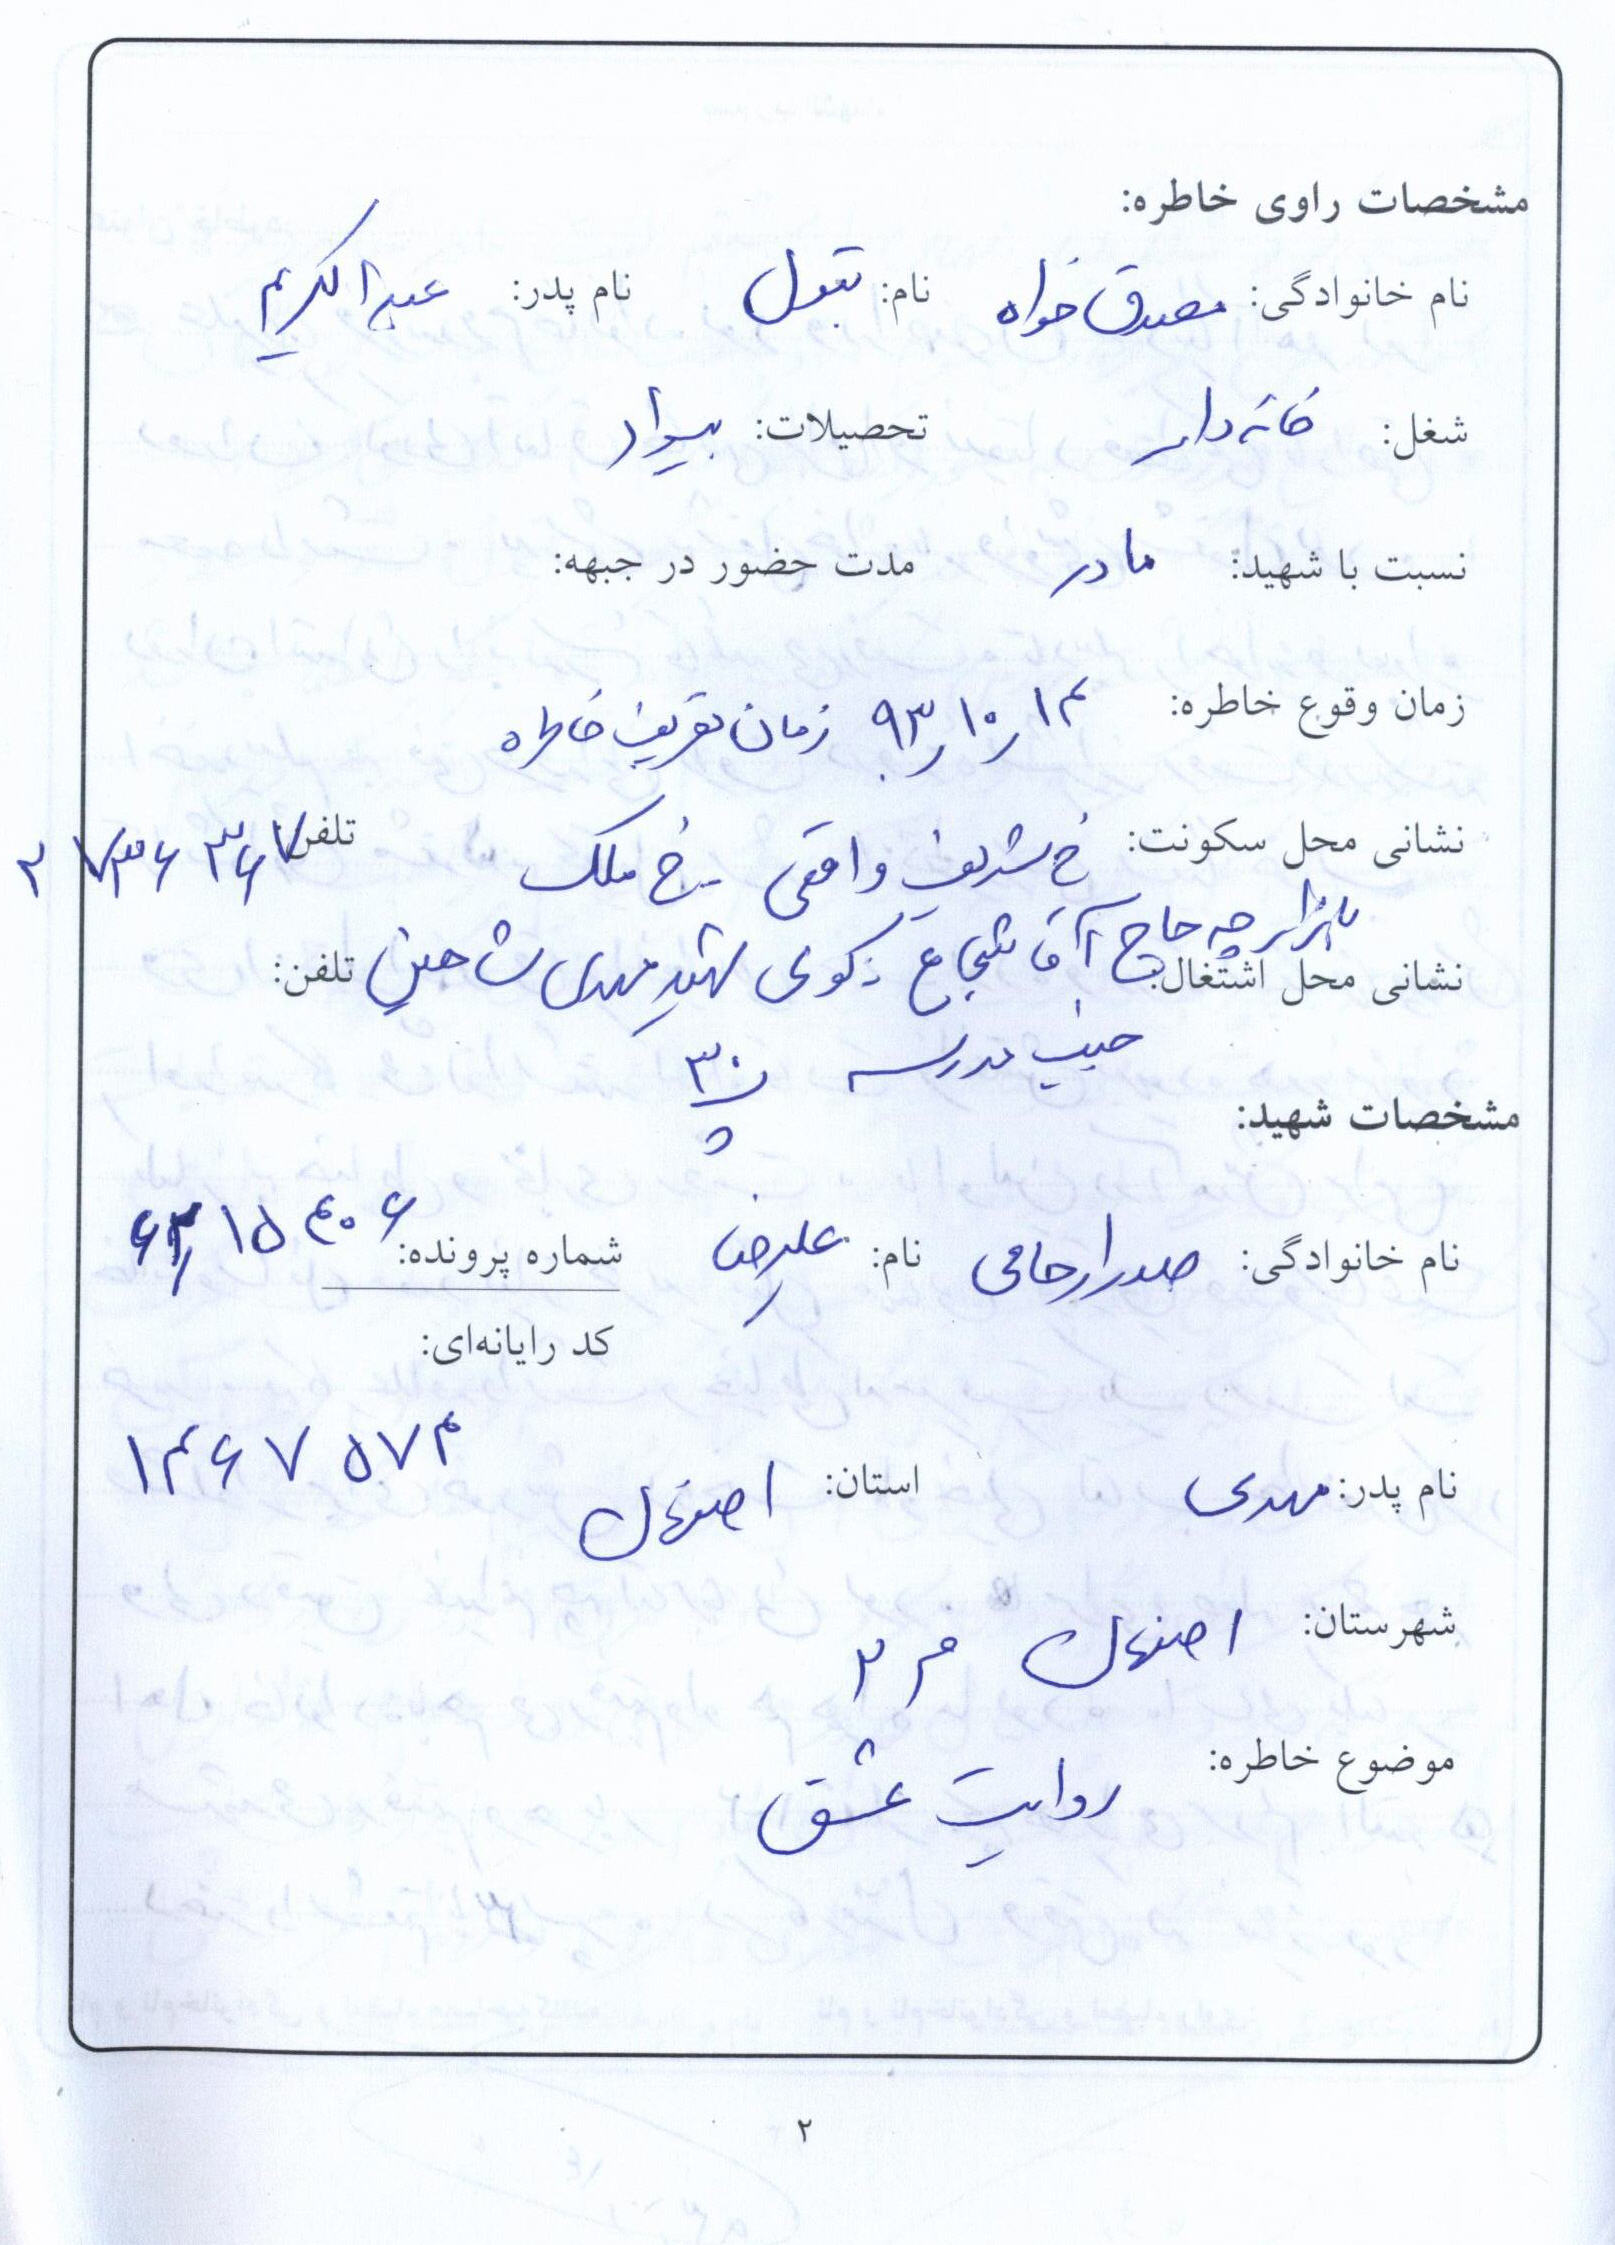 مشخصات راوی خاطره:
نام خانوادگی: مصدق خواه نام: بتول نام پدر: عبدالکریم
شغل: خانه دار تحصیلات: بیسواد
نسبت با شهید: مادر مدت حضور در جبهه:
زمان وقوع خاطره: ۹۳/۱۰/۱۴ زمان تعریف خاطره
نشانی محل سکونت: خ شریف واقفی - خ ملک تلفن:
بازارچه حاج آقا شجاع - کوی شهید مهدی شاهین
نشانی محل اشتغال: تلفن:
جنب مدرسه پ ۳۰
مشخصات شهید:
نام خانوادگی: صدرارحامی نام: علیرضا شماره پرونده: ۱۵۴۰۶
کد رایانه‌ای:
۱۴۶۷۵۷۴
نام پدر: مهدی استان: اصفهان
شهرستان: اصفهان م ۲
موضوع خاطره: روایت عشق
۲